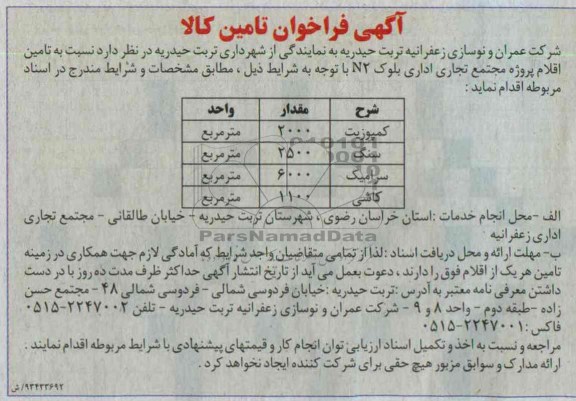 آگهی فراخوان تامین کالا
شرکت عمران و نوسازی زعفرانیه تربت حیدریه به نمایندگی از شهرداری تربت حیدریه در نظر دارد نسبت به تامین
اقلام پروژه مجتمع تجاری اداری بلوک N۲ با توجه به شرایط ذیل ، مطابق مشخصات و شرایط مندرج در اسناد
مربوطه اقدام نماید :
شرح مقدار واحد
کمپوزیت ۲۰۰۰ مترمربع
سنگ ۲۵۰۰ مترمربع
سرامیک ۶۰۰۰ مترمربع
کاشی ۱۱۰۰ مترمربع
الف -محل انجام خدمات :استان خراسان رضوی ، شهرستان تربت حیدریه - خیابان طالقانی - مجتمع تجاری
اداری زعفرانیه
ParsNamadData
ب- مهلت ارائه و محل دریافت اسناد :لذا از تمامی متقاضیان واجد شرایط که آمادگی لازم جهت همکاری در زمینه
تامین هر یک از اقلام فوق را دارند ، دعوت بعمل می آید از تارتخ انتشار آگهی حداکثر ظرف مدت ده روز با در دست
داشتن معرفی نامه معتبر به آدرس :تربت حیدریه :خیابان فردوسی شمالی - فردوسی شمالی ۴۸ - مجتمع حسن
زاده -طبقه دوم - واحد ۸ و ۹ - شرکت عمران و نوسازی زعفرانیه تربت حیدریه - تلفن ۲۲۴۷۰۰۲-۰۵۱۵
فاکس :۲۲۴۷۰۰۱-۰۵۱۵
مراجعه و نسبت به اخذ و تکمیل اسناد ارزیابی توان انجام کار و قیمتهای پیشنهادی با شرایط مربوطه اقدام نمایند .
ارائه مدارک و سوابق مزبور هیچ حقی برای شرکت کننده ایجاد نخواهد کرد .
۹۳۴۳۳۶۹۲/ش